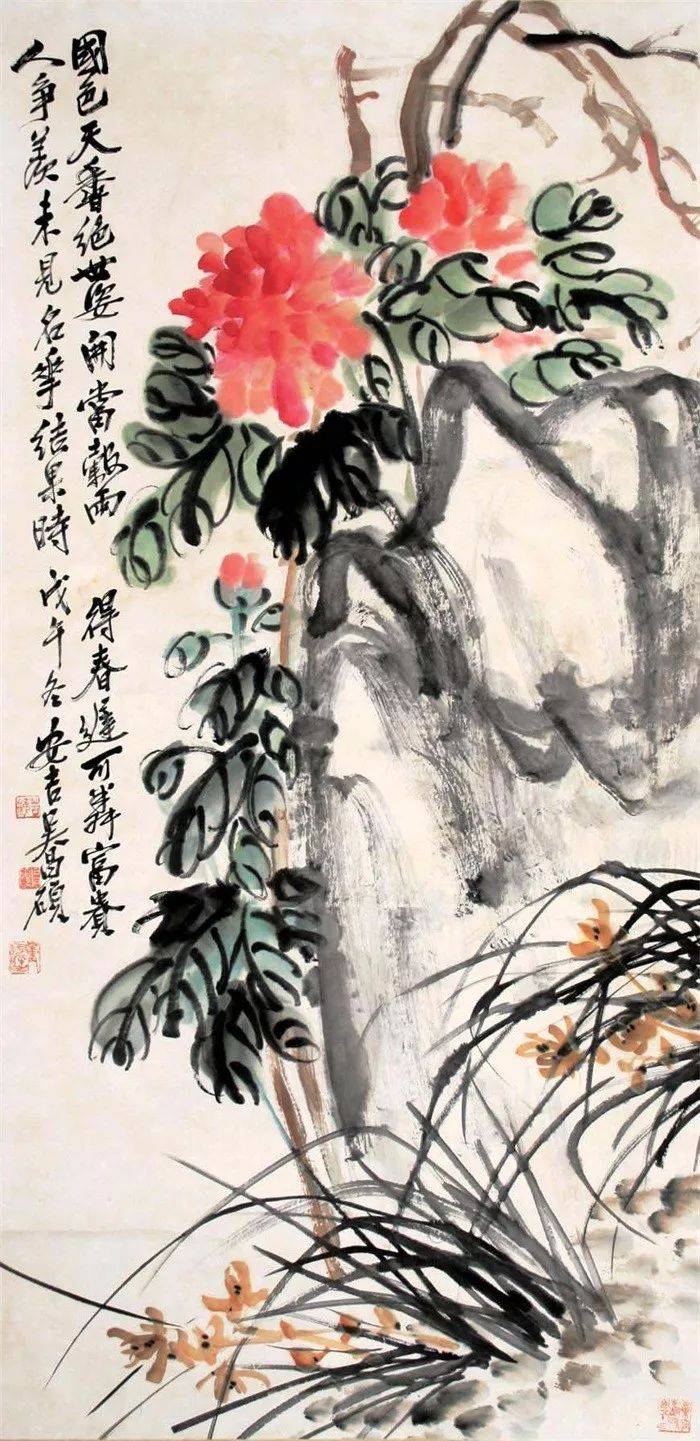 國色天香絕世姿開當穀雨得春遲可粦富貴
人爭羨未見名華結果時戊午冬安吉吳昌碩